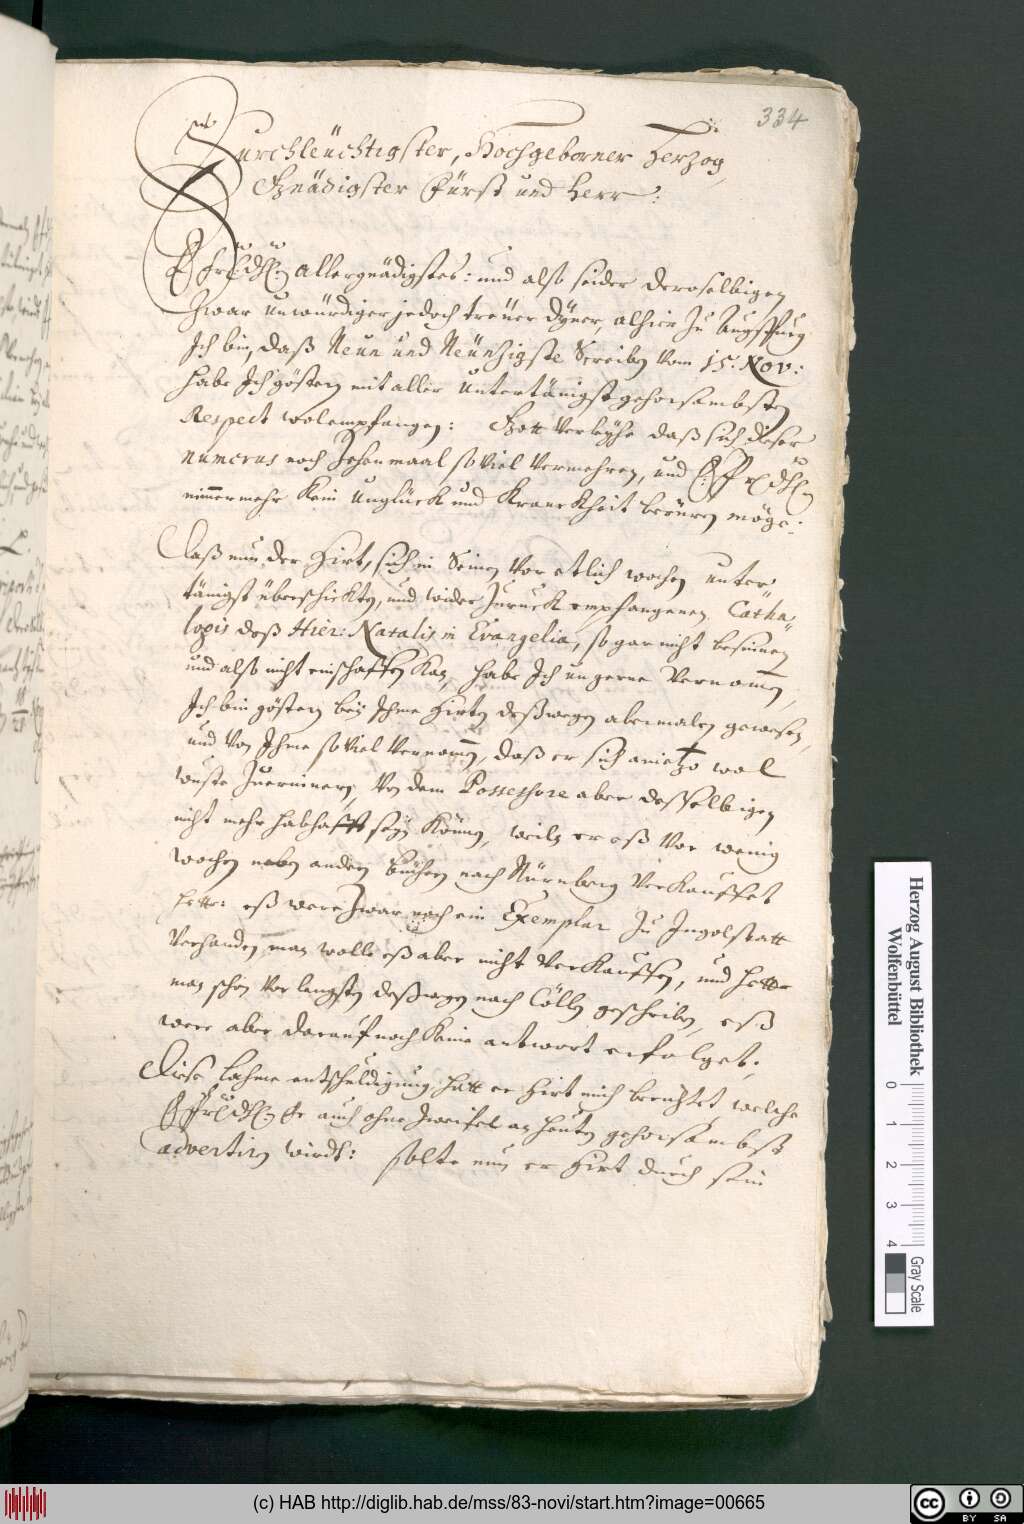 334
Durchleuchtigster, Hochgeborner Herzog,
Gnädigster Fürst und Herr:
allergnädigstes: und also seider deroselbigen
zwar unwürdiger jedoch treuer dyner, alhier zu Augspurg
Ich bin, daß Neun und Neünzigste Screiben vom 15. Nov:
habe Ich gösteren mit aller untertänigst gehorsambsten
Respect wol empfangen: Gott verleyhe daß sich dieser
numerus noch zehen maal so viel vermehren, und
nimmermehr kein unglück und kranckheit berüren möge:
Daß nun der Hirt, sich in Seinen vor etlich wochen unter
tänigst überschickten, und wider zuruck empfangenen Catha„
logis deß Hier: Natalis in Evangelia, so gar nicht besinnen
und also nicht einschaffen kan, habe Ich ungeren vernomen,
Ich bin gösteren bey Ihme Hirten deßwegen abermalen gewesen,
und von Ihme so viel vernomen, daß er sich anietzo wol
wuste zuerinneren, von dem Possessore aber desselbigen
nicht mehr habhafft seyn können, weiln er eß vor wenig
wochen neben anderen büchern nach Nürnberg verkauffet
hette: eß were zwar noch ein Exemplar zu Ingolstatt
verhanden, man wolle eß aber nicht verkauffen, und hette
man schon vor lengsten deßwegen nach Cölln geschriben, eß
were aber darauf noch keine antwort erfolget;
Diese lahme entschuldigung hatt er Hirt mich berichtet, welche
er auch ohne zweifel an heuten gehorsambst
advertiren wirdt: solte nun er Hirt durch sein
Herzog August Bibliothek
Wolfenbüttel
0 1 2 3 4
Gray Scale
(c) HAB http://diglib.hab.de/mss/83-novi/start.htm?image=00665
cc BY SA